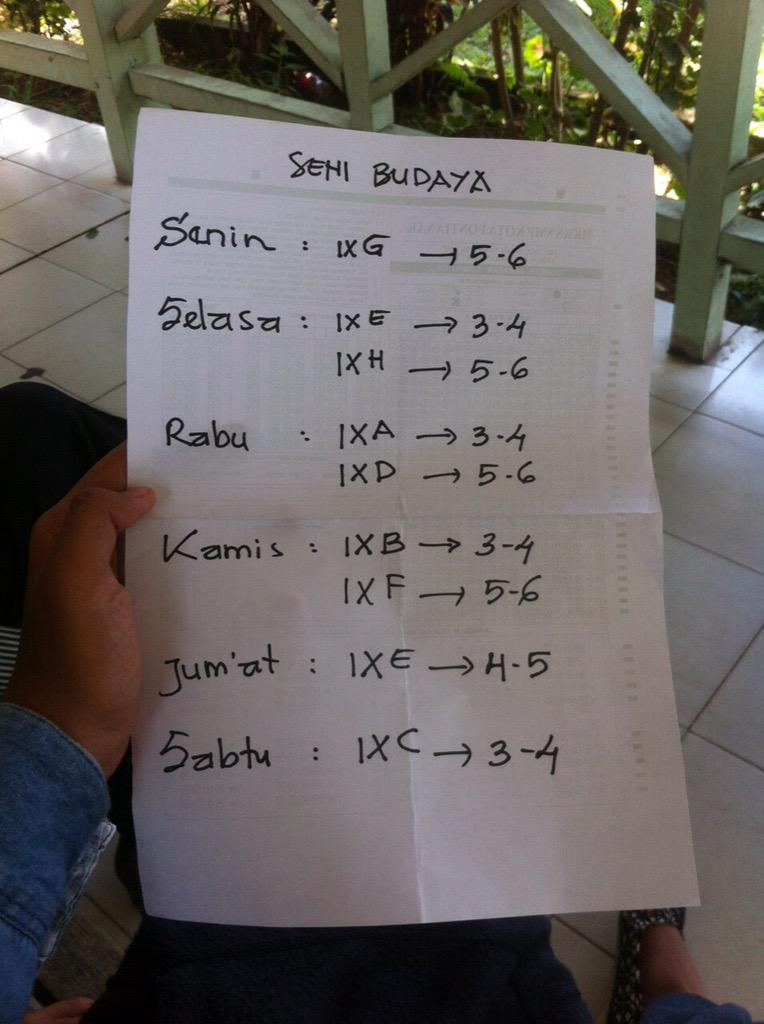 SENI BUDAYA
Senin : IXG → 5-6
Selasa : IXE → 3-4
IXH → 5-6
Rabu : IXA → 3-4
IXD → 5-6
Kamis : IXB → 3-4
IXF → 5-6
Jum'at : IXE → 4-5
Sabtu : IXC → 3-4